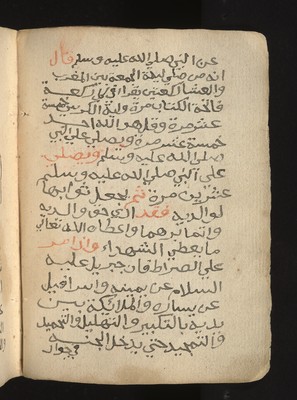 عن النبي صلي الله عليه وسلم قال
انه من صلي ليلة الجمعة بين المغرب
والعشا ركعتين يقرا في كل ركعة
فاتحة الكتاب مرة واية الكرسي خمسة
عشر مرة وقل هو الله احد
خمسة عشر مرة ويصلي علي النبي
صلي الله عليه وسلم ويصلي
علي النبي صلي الله عليه وسلم
عشرين مرة ثم يجعل ثوابها
لوالديه فقد ادي حق والديه
واتم برهما واعطاه الله تعالي
ما يعطي الشهداء واذا مر
علي الصراط كان جبريل عليه
السلام عن يمينه واسرافيل
عن يساره والملائكة بين
يديه بالتكبير والتهليل والتحميد
والتمجيد حتي يدخل الجنة